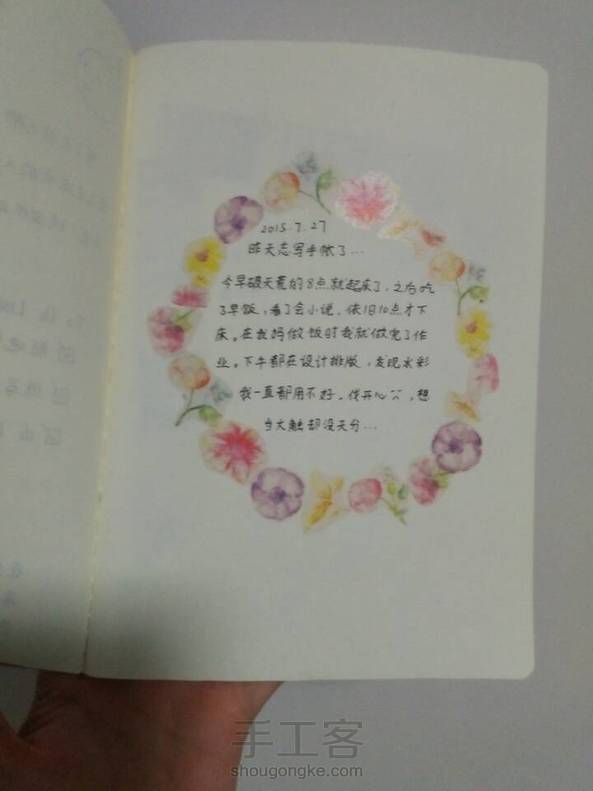 2015.7.27
昨天忘写手帐了...
今早破天荒的8点就起床了，之后吃
了早饭，看了会小说。依旧10点才下
床。在我妈做饭时我就做完了作
业。下午都在设计排版，发现水彩
我一直都用不好。伐开心，想
当大触却没天分...
手工客
shougongke.com